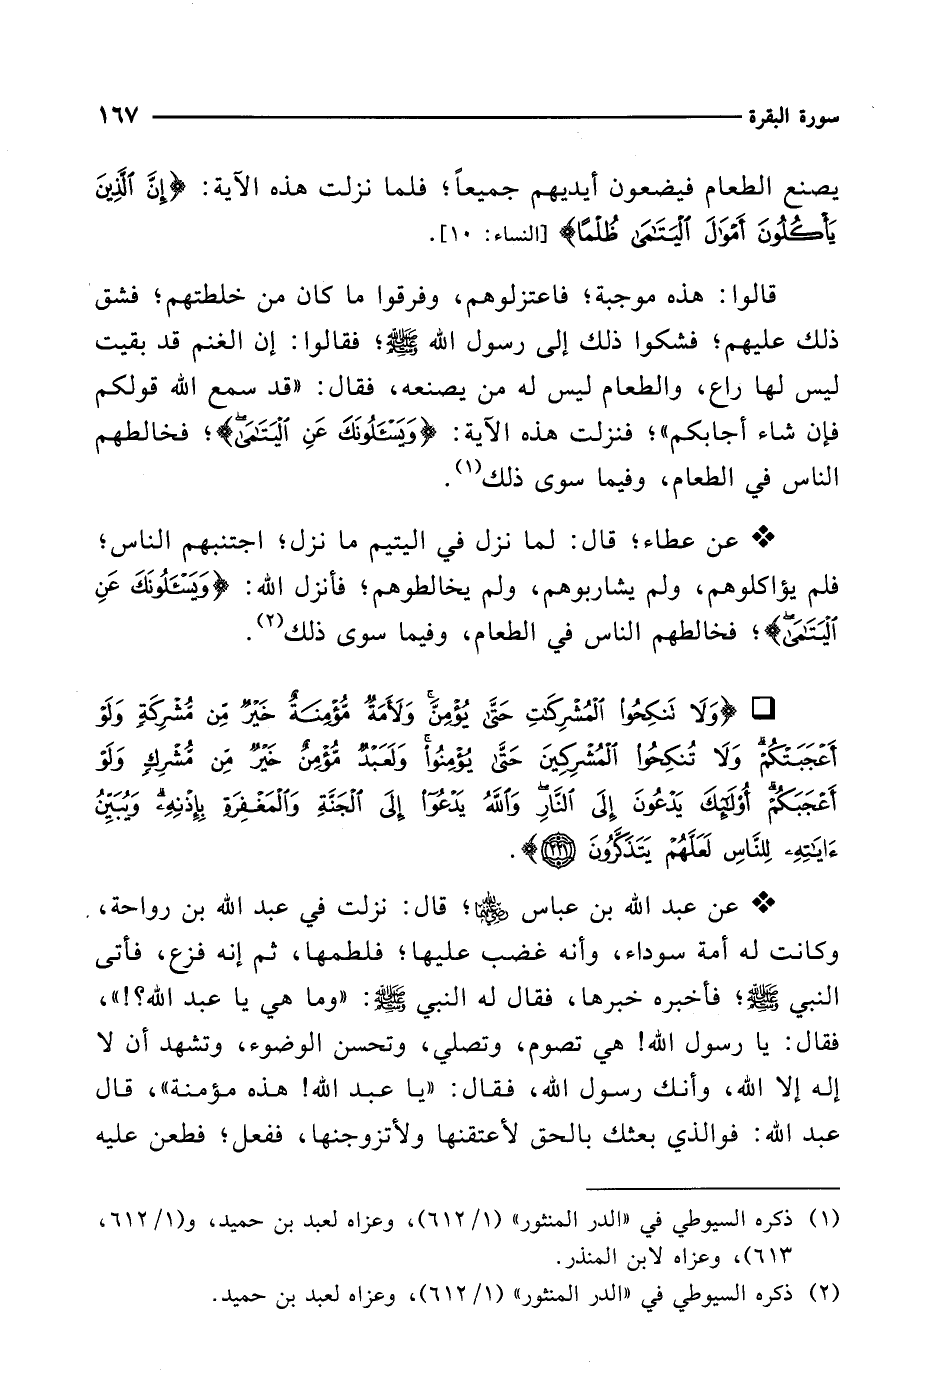 سورة البقرة ١٦٧
يصنع الطعام فيضعون أيديهم جميعاً؛ فلما نزلت هذه الآية: ﴿إِنَّ ٱلَّذِينَ
يَأْكُلُونَ أَمْوَٰلَ ٱلْيَتَٰمَىٰ ظُلْمًا﴾ [النساء: ١٠].
قالوا: هذه موجبة؛ فاعتزلوهم، وفرقوا ما كان من خلطتهم؛ فشق
ذلك عليهم؛ فشكوا ذلك إلى رسول الله ﷺ؛ فقالوا: إن الغنم قد بقيت
ليس لها راع، والطعام ليس له من يصنعه، فقال: «قد سمع الله قولكم
فإن شاء أجابكم»؛ فنزلت هذه الآية: ﴿وَيَسْـَٔلُونَكَ عَنِ ٱلْيَتَٰمَىٰ ۖ﴾؛ فخالطهم
الناس في الطعام، وفيما سوى ذلك(١).
❖ عن عطاء؛ قال: لما نزل في اليتيم ما نزل؛ اجتنبهم الناس؛
فلم يؤاكلوهم، ولم يشاربوهم، ولم يخالطوهم؛ فأنزل الله: ﴿وَيَسْـَٔلُونَكَ عَنِ
ٱلْيَتَٰمَىٰ ۖ﴾؛ فخالطهم الناس في الطعام، وفيما سوى ذلك(٢).
❑ ﴿وَلَا تَنكِحُوا۟ ٱلْمُشْرِكَٰتِ حَتَّىٰ يُؤْمِنَّ ۚ وَلَأَمَةٌ مُّؤْمِنَةٌ خَيْرٌ مِّن مُّشْرِكَةٍ وَلَوْ
أَعْجَبَتْكُمْ ۗ وَلَا تُنكِحُوا۟ ٱلْمُشْرِكِينَ حَتَّىٰ يُؤْمِنُوا۟ ۚ وَلَعَبْدٌ مُّؤْمِنٌ خَيْرٌ مِّن مُّشْرِكٍ وَلَوْ
أَعْجَبَكُمْ ۗ أُو۟لَٰٓئِكَ يَدْعُونَ إِلَى ٱلنَّارِ ۖ وَٱللَّهُ يَدْعُوٓا۟ إِلَى ٱلْجَنَّةِ وَٱلْمَغْفِرَةِ بِإِذْنِهِۦ ۖ وَيُبَيِّنُ
ءَايَٰتِهِۦ لِلنَّاسِ لَعَلَّهُمْ يَتَذَكَّرُونَ ٢٢١﴾.
❖ عن عبد الله بن عباس رضي الله عنهما؛ قال: نزلت في عبد الله بن رواحة،
وكانت له أمة سوداء، وأنه غضب عليها؛ فلطمها، ثم إنه فزع، فأتى
النبي ﷺ؛ فأخبره خبرها، فقال له النبي ﷺ: «وما هي يا عبد الله؟!»،
فقال: يا رسول الله! هي تصوم، وتصلي، وتحسن الوضوء، وتشهد أن لا
إله إلا الله، وأنك رسول الله، فقال: «يا عبد الله! هذه مؤمنة»، قال
عبد الله: فوالذي بعثك بالحق لأعتقنها ولأتزوجنها، ففعل؛ فطعن عليه
(١) ذكره السيوطي في «الدر المنثور» (١/ ٦١٢)، وعزاه لعبد بن حميد، و(١/ ٦١٢،
٦١٣)، وعزاه لابن المنذر.
(٢) ذكره السيوطي في «الدر المنثور» (١/ ٦١٢)، وعزاه لعبد بن حميد.